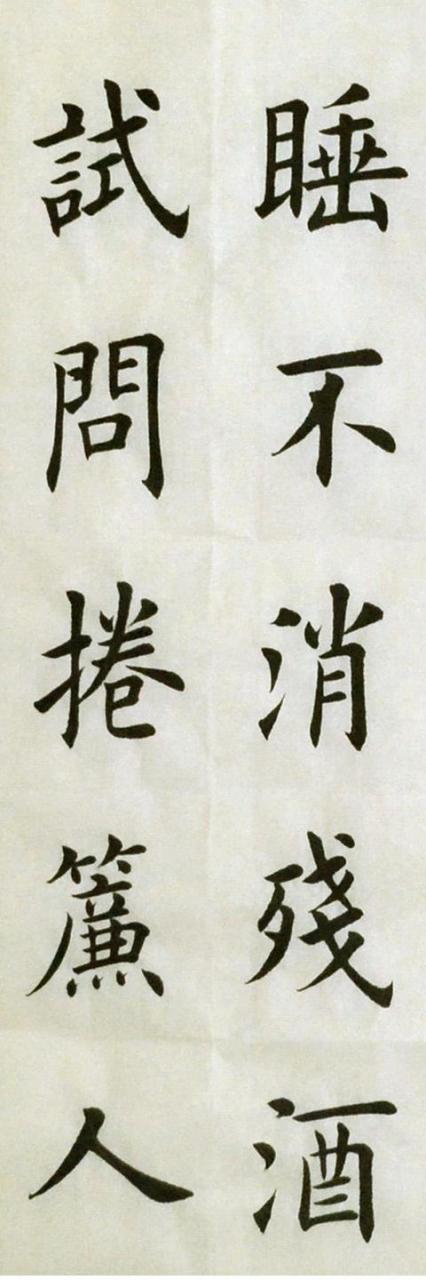 睡不消殘酒
試問捲簾人